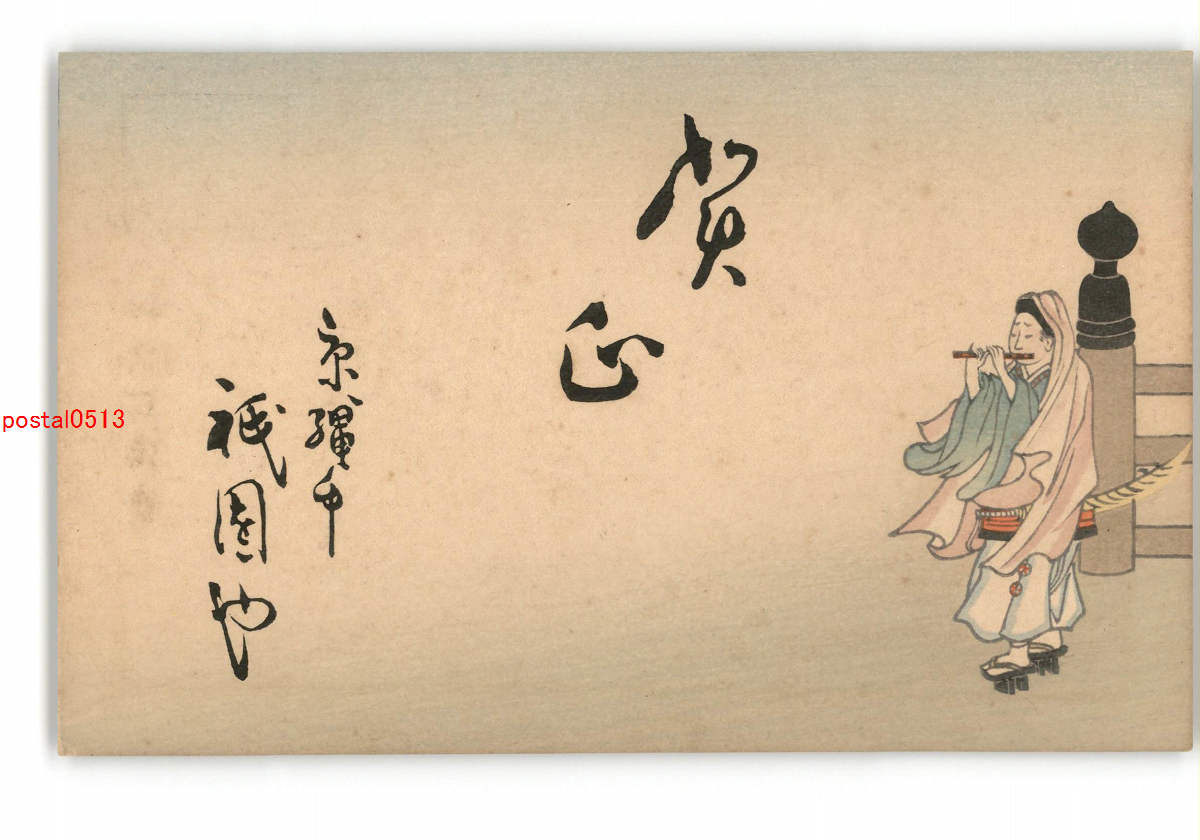 賀
正
京縄手
祇園也
postal0513